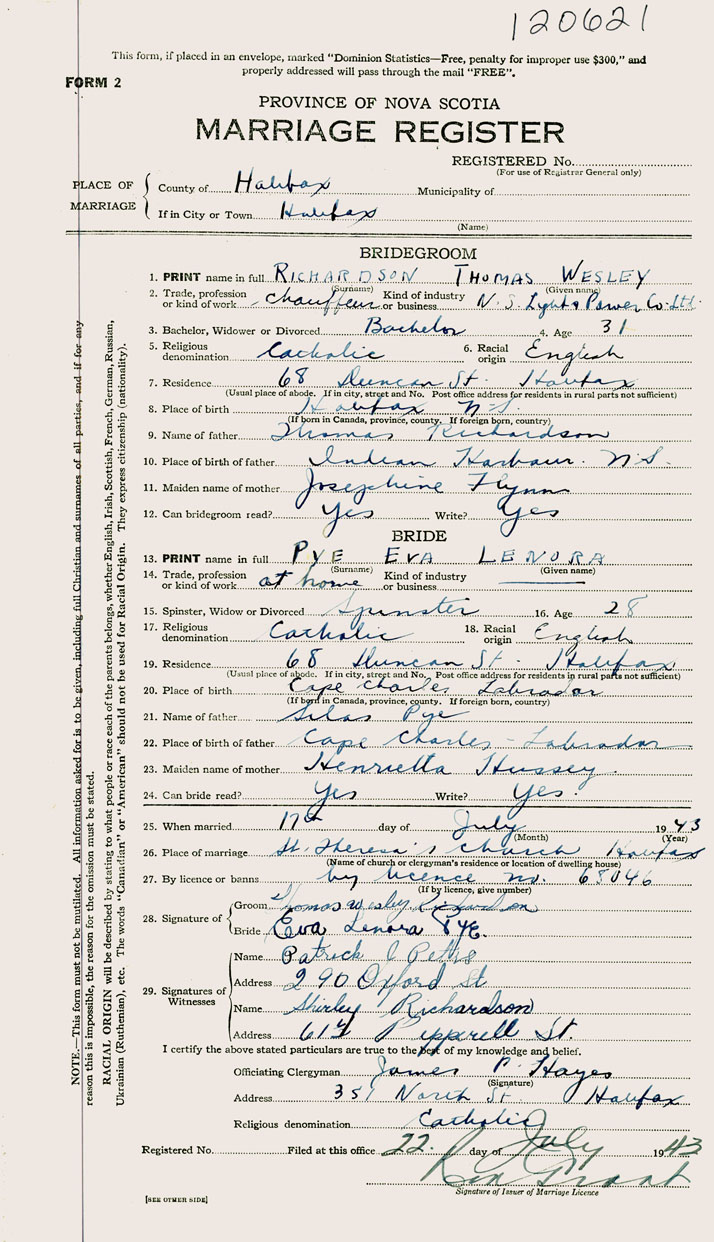 120621
This form, if placed in an envelope, marked "Dominion Statistics—Free, penalty for improper use $300," and
properly addressed will pass through the mail "FREE".
FORM 2
PROVINCE OF NOVA SCOTIA
MARRIAGE REGISTER
REGISTERED No.
(For use of Registrar General only)
PLACE OF MARRIAGE
County of Halifax Municipality of
If in City or Town Halifax
(Name)
BRIDEGROOM
1. PRINT name in full RICHARDSON THOMAS WESLEY
(Surname) (Given name)
2. Trade, profession or kind of work chauffeur Kind of industry or business N.S. Light & Power Co. Ltd.
3. Bachelor, Widower or Divorced Bachelor 4. Age 31
5. Religious denomination Catholic 6. Racial origin English
7. Residence 68 Duncan St. Halifax
(Usual place of abode. If in city, street and No. Post office address for residents in rural parts not sufficient)
8. Place of birth Halifax N.S.
(If born in Canada, province, county. If foreign born, country)
9. Name of father Thomas Richardson
10. Place of birth of father Indian Harbour. N.S.
11. Maiden name of mother Josephine Flynn
12. Can bridegroom read? Yes Write? Yes
BRIDE
13. PRINT name in full PYE EVA LENORA
(Surname) (Given name)
14. Trade, profession or kind of work at home Kind of industry or business
15. Spinster, Widow or Divorced Spinster 16. Age 28
17. Religious denomination Catholic 18. Racial origin English
19. Residence 68 Duncan St. Halifax
(Usual place of abode. If in city, street and No. Post office address for residents in rural parts not sufficient)
20. Place of birth Cape Charles Labrador
(If born in Canada, province, county. If foreign born, country)
21. Name of father Silas Pye
22. Place of birth of father Cape Charles - Labrador
23. Maiden name of mother Henrietta Hussey.
24. Can bride read? Yes Write? Yes.
25. When married 17th day of July 1943
(Month) (Year)
26. Place of marriage St. Theresa's Church Halifax
(Name of church or clergyman's residence or location of dwelling house)
27. By licence or banns by licence no. 68046
(If by licence, give number)
28. Signature of
Groom Thomas Wesley Richardson
Bride Eva Lenora Pye.
29. Signatures of Witnesses
Name Patrick J
Address 290 Oxford St
Name Shirley Richardson
Address Pepperell St.
I certify the above stated particulars are true to the best of my knowledge and belief.
Officiating Clergyman James P. Hayes
(Signature)
Address 351 North St. Halifax
Religious denomination Catholic
Registered No. Filed at this office 22. day of July 1943
Grant
Signature of Issuer of Marriage Licence
[SEE OTHER SIDE]
NOTE.—This form must not be mutilated. All information asked for is to be given, including full Christian and surnames of all parties, and if for any
reason this is impossible, the reason for the omission must be stated.
RACIAL ORIGIN will be described by stating to what people or race each of the parents belongs, whether English, Irish, Scottish, French, German, Russian,
Ukrainian (Ruthenian), etc. The words "Canadian" or "American" should not be used for Racial Origin. They express citizenship (nationality).